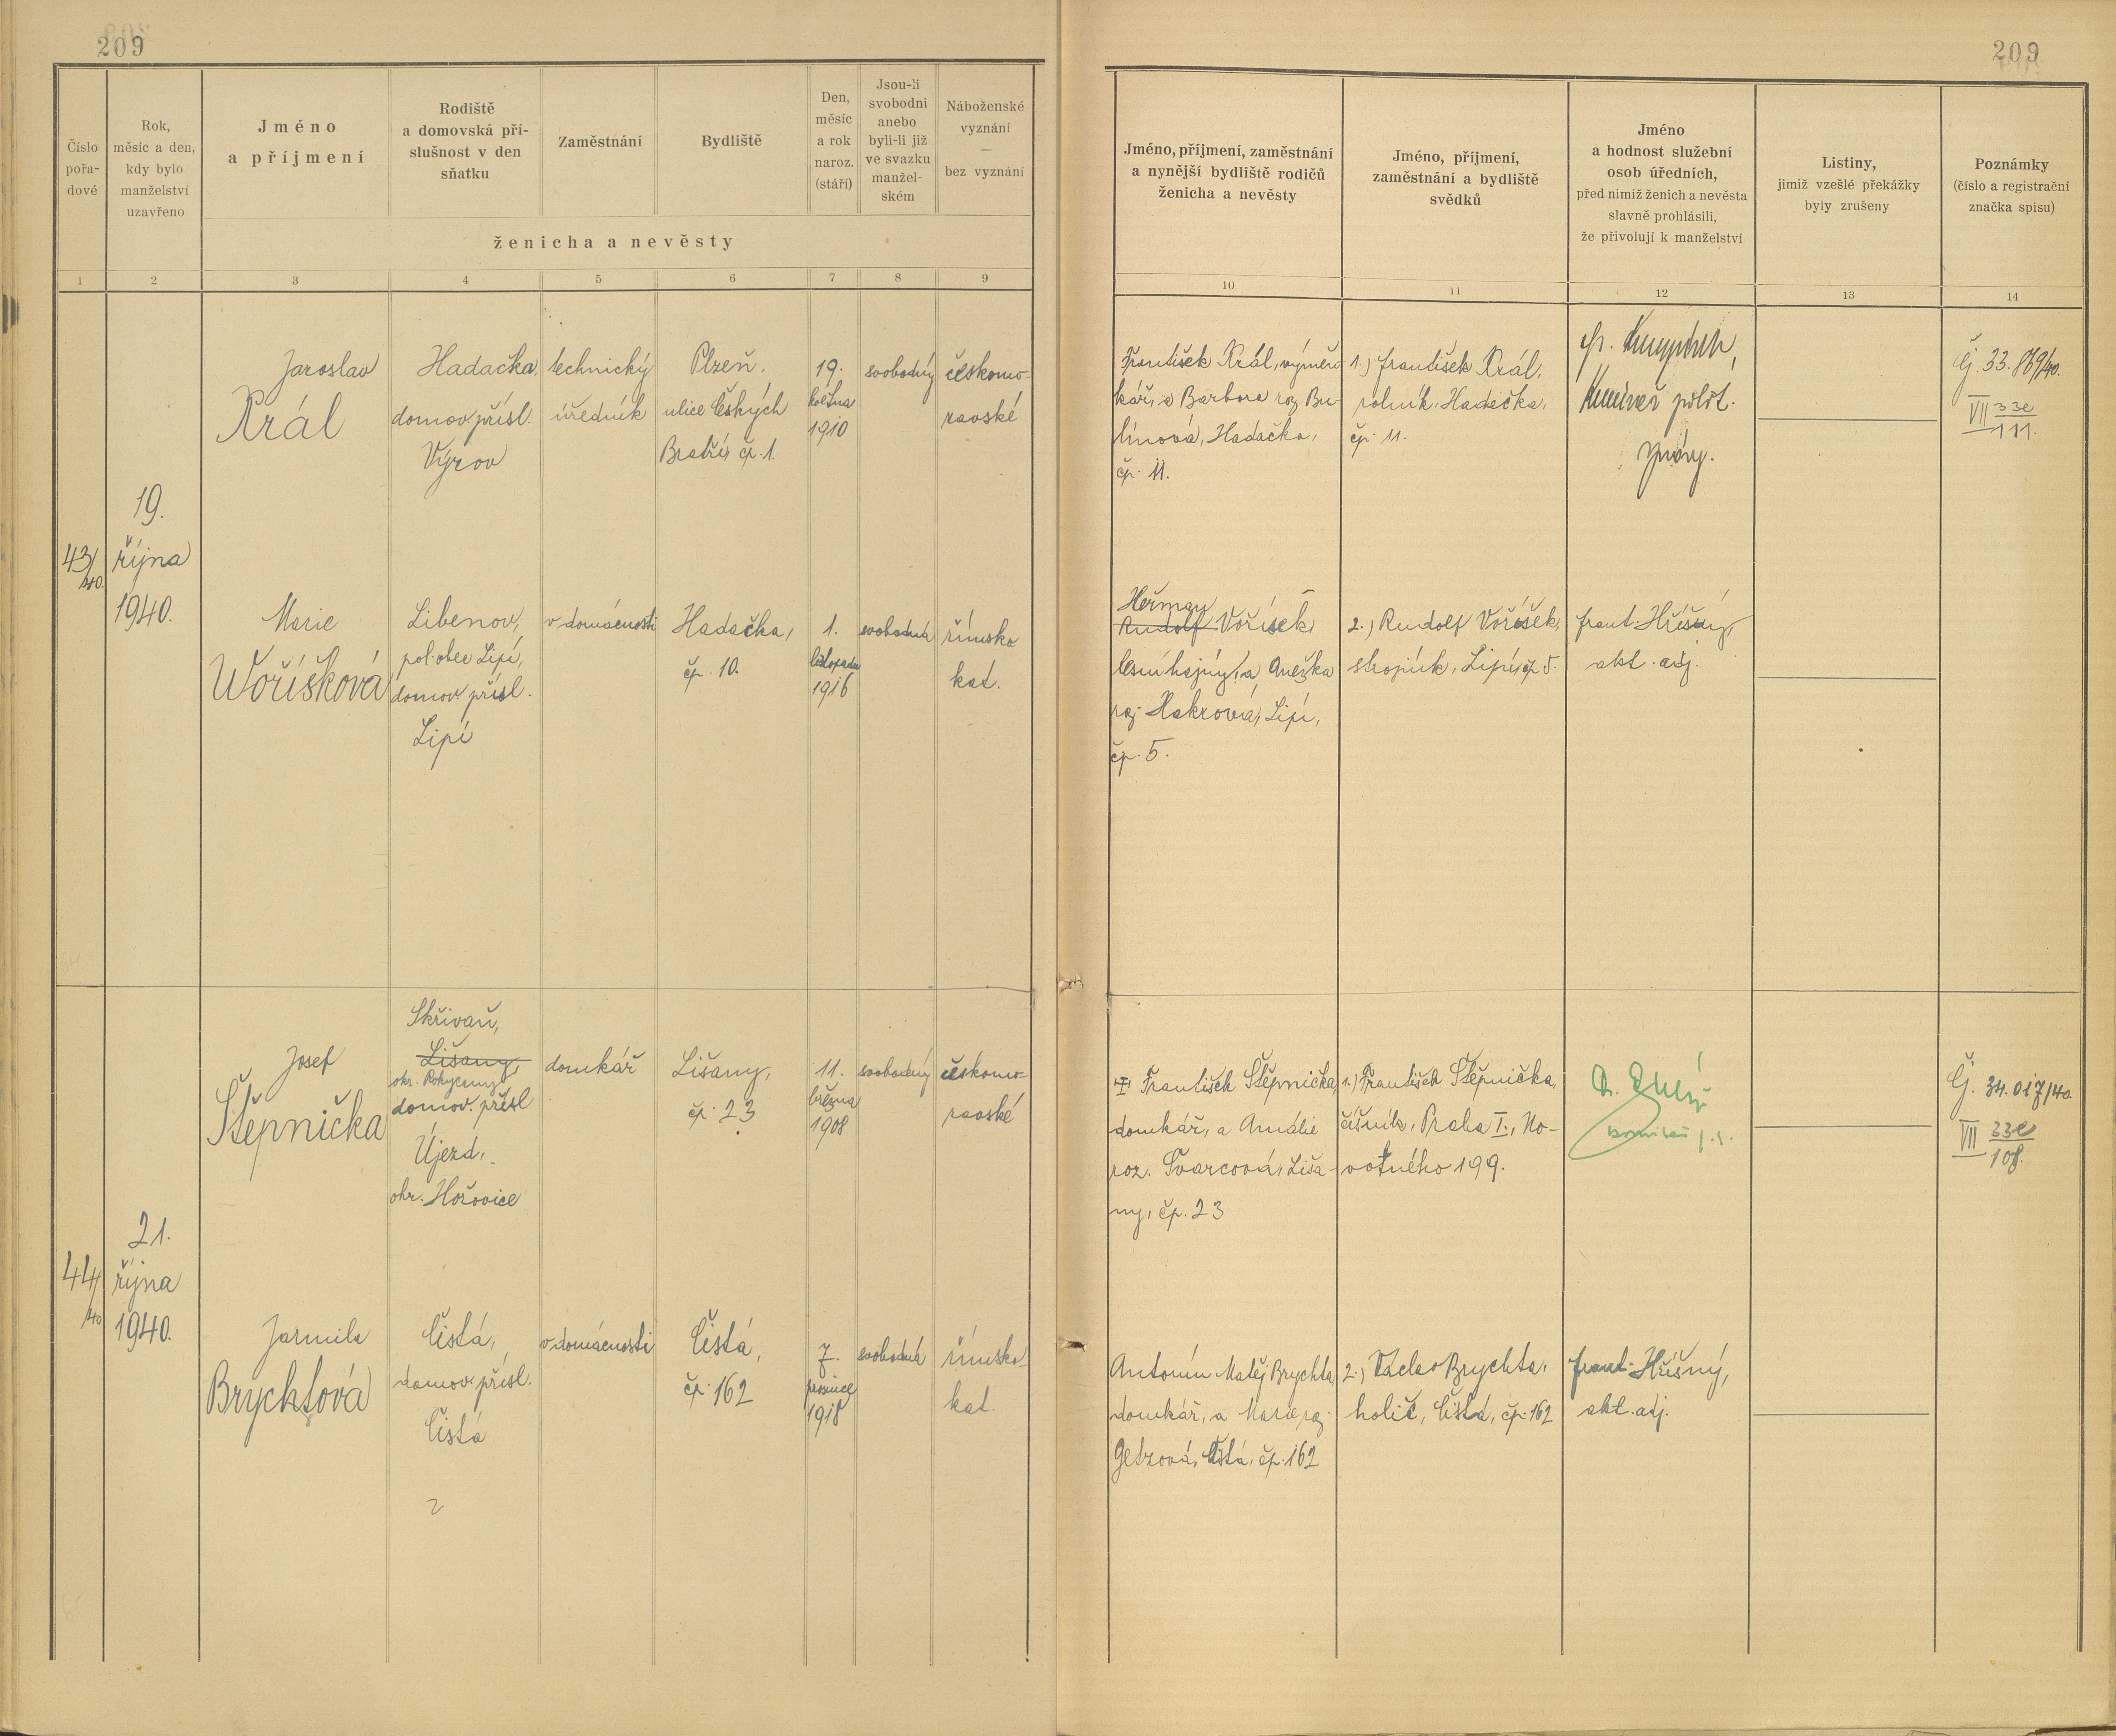 209
209
Číslo pořa-dové
Rok, měsíc a den, kdy bylo manželství uzavřeno
Jméno a příjmení
Rodiště a domovská pří-slušnost v den sňatku
Zaměstnání
Bydliště
Den, měsíc a rok naroz. (stáří)
Jsou-li svobodni anebo byli-li již ve svazku manžel-ském
Náboženské vyznání — bez vyznání
ženicha a nevěsty
Jméno, příjmení, zaměstnání a nynější bydliště rodičů ženicha a nevěsty
Jméno, příjmení, zaměstnání a bydliště svědků
Jméno a hodnost služební osob úředních, před nimiž ženich a nevěsta slavně prohlásili, že přivolují k manželství
Listiny, jimiž vzešlé překážky byly zrušeny
Poznámky (číslo a registrační značka spisu)
1 2 3 4 5 6 7 8 9 10 11 12 13 14
43/40.
19.
října
1940.
Jaroslav
Král
Hadačka,
domov. přísl.
Výrov
technický
úředník
Plzeň,
ulice Českých
Bratří, čp. 1.
19.
května
1910
svobodný
českomo-
ravské
František Král, výměn-
kář, a Barbora roz. Bu-
línová, Hadačka,
čp. 11.
1.) František Král,
rolník, Hadačka,
čp. 11.
polit.
správy.
Čj. 33.869/40.
VII 33e
111.
Marie
Voříšková
Libenov,
pol. obec Lipí,
domov. přísl.
Lipí
v domácnosti
Hadačka,
čp. 10.
1.
listopadu
1916
svobodná
římsko
kat.
Heřman
Rudolf Voříšek,
lesní hajný, a Anežka
roz. Hakrová, Lipí,
čp. 5.
2.) Rudolf Voříšek,
strojník, Lipí, čp. 5.
Frant. Hříšný,
akt. adj.
44/40
21.
října
1940.
Josef
Štěpnička
Skřivaň,
Lišany,
okr. Rokycany
domov. přísl
Újezd,
okr. Hořovice
domkář
Lišany,
čp. 23
11.
března
1908
svobodný
českomo-
ravské
František Štěpnička,
domkář, a Amálie
roz. Švarcová, Liša-
ny, čp. 23
1.) František Štěpnička,
číšník, Praha I., No-
votného 199.
Čj. 34.017/40.
VII 33e
108.
Jarmila
Brychtová
Čistá,
domov. přísl.
Čistá
v domácnosti
Čistá,
čp. 162
7.
prosince
1918
svobodná
římsko-
kat.
Antonín Matěj Brychta,
domkář, a Marie roz.
Getzová, Čistá, čp. 162
2.) Václav Brychta,
holič, Čistá, čp. 162
Frant. Hříšný,
akt. adj.
2